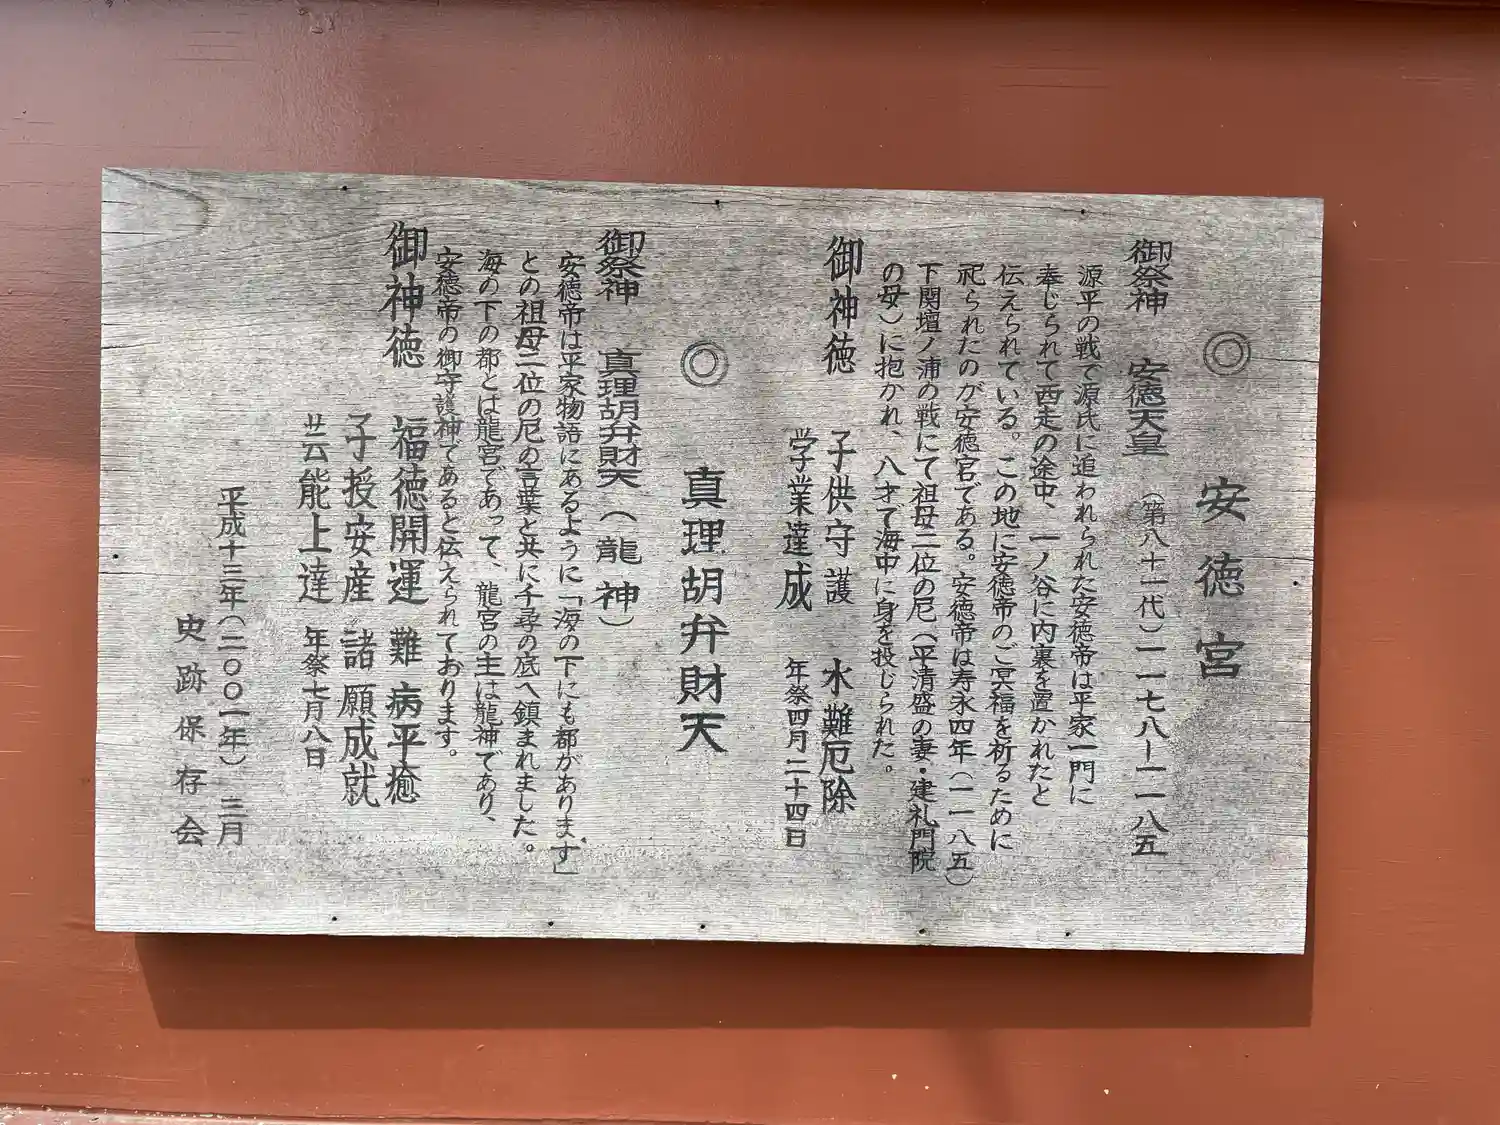 ◎ 安徳宮
御祭神 安徳天皇 (第八十一代)一一七八ー一一八五
源平の戦で源氏に追われられた安徳帝は平家一門に
奉じられて西走の途中、一ノ谷に内裏を置かれたと
伝えられている。この地に安徳帝のご冥福を祈るために
祀られたのが安徳宮である。安徳帝は寿永四年(一一八五)
下関壇ノ浦の戦にて祖母二位の尼(平清盛の妻・建礼門院
の母)に抱かれ、八才で海中に身を投じられた。
御神徳 子供守護 水難厄除
学業達成 年祭四月二十四日
◎ 真理胡弁財天
御祭神 真理胡弁財天(龍神)
安徳帝は平家物語にあるように「海の下にも都があります」
との祖母二位の尼の言葉と共に千尋の底へ鎮まれました。
海の下の都とは龍宮であって、龍宮の主は龍神であり、
安徳帝の御守護神であると伝えられております。
御神徳 福徳開運 難病平癒
子授安産 諸願成就
芸能上達 年祭七月八日
平成十三年(二〇〇一年) 三月
史跡保存会